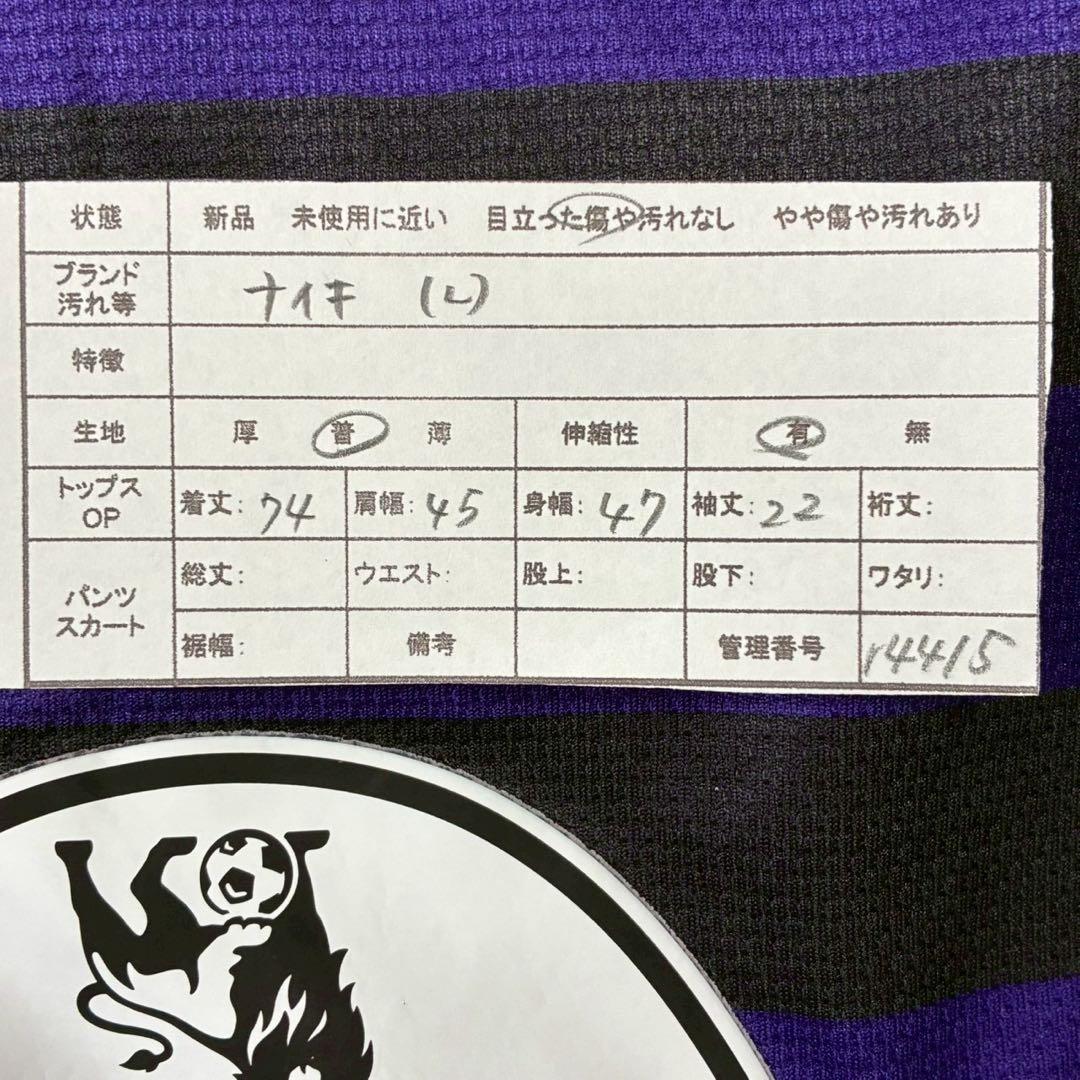 状態 新品 未使用に近い 目立った傷や汚れなし やや傷や汚れあり
ブランド
汚れ等 ナイキ (L)
特徴
生地 厚 普 薄 伸縮性 有 無
トップス
OP 着丈: 74 肩幅: 45 身幅: 47 袖丈: 22 裄丈:
パンツ
スカート 総丈: ウエスト: 股上: 股下: ワタリ:
裾幅: 備考 管理番号 14415